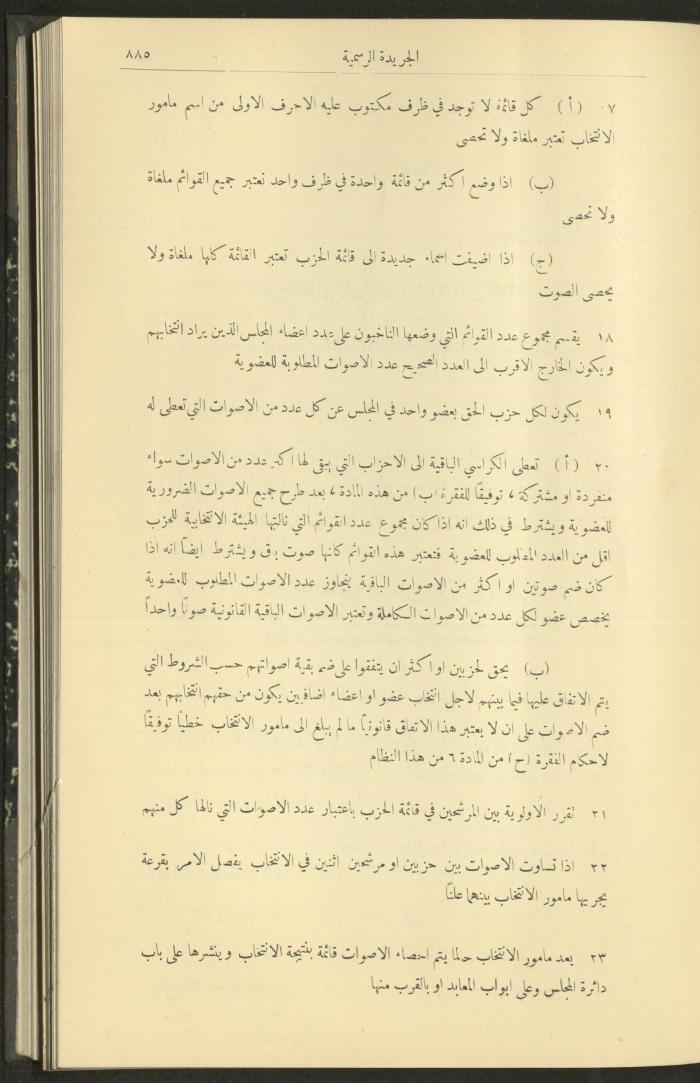 الجريدة الرسمية
٨٨٥
٧٠ (أ) كل قائمة لا توجد في ظرف مكتوب عليه الاحرف الاولى من اسم مامور
الانتخاب تعتبر ملغاة ولا تحصى
(ب) اذا وضع اكثر من قائمة واحدة في ظرف واحد تعتبر جميع القوائم ملغاة
ولا تحصى
(ج) اذا اضيفت اسماء جديدة الى قائمة الحزب تعتبر القائمة كلها ملغاة ولا
يحصى الصوت
١٨ يقسم مجموع عدد القوائم التي وضعها الناخبون على عدد اعضاء المجلس الذين يراد انتخابهم
ويكون الخارج الاقرب الى العدد الصحيح عدد الاصوات المطلوبة للعضوية
١٩ يكون لكل حزب الحق بعضو واحد في المجلس عن كل عدد من الاصوات التي تعطى له
٢٠ (أ) تعطى الكراسي الباقية الى الاحزاب التي يبقى لها اكبر عدد من الاصوات سواء
منفردة او مشتركة ، توفيقًا للفقرة (ب) من هذه المادة ، بعد طرح جميع الاصوات الضرورية
للعضوية ويشترط في ذلك انه اذا كان مجموع عدد القوائم التي نالتها الهيئة الانتخابية للحزب
اقل من العدد المطلوب للعضوية فتعتبر هذه القوائم كانها صوت باق ويشترط ايضًا انه اذا
كان ضم صوتين او اكثر من الاصوات الباقية يتجاوز عدد الاصوات المطلوب للعضوية
يخصص عضو لكل عدد من الاصوات الكاملة وتعتبر الاصوات الباقية القانونية صوتًا واحداً
(ب) يحق لحزبين او اكثر ان يتفقوا على ضم بقية اصواتهم حسب الشروط التي
يتم الاتفاق عليها فيما بينهم لاجل انتخاب عضو او اعضاء اضافيين يكون من حقهم انتخابهم بعد
ضم الاصوات على ان لا يعتبر هذا الاتفاق قانونيًا ما لم يبلغ الى مامور الانتخاب خطيًا توفيقًا
لاحكام الفقرة (ح) من المادة ٦ من هذا النظام
٢١ تقرر الاولوية بين المرشحين في قائمة الحزب باعتبار عدد الاصوات التي نالها كل منهم
٢٢ اذا تساوت الاصوات بين حزبين او مرشحين اثنين في الانتخاب يفصل الامر بقرعة
يجريها مامور الانتخاب بينهما علنًا
٢٣ يعد مامور الانتخاب حالما يتم احصاء الاصوات قائمة بنتيجة الانتخاب وينشرها على باب
دائرة المجلس وعلى ابواب المعابد او بالقرب منها